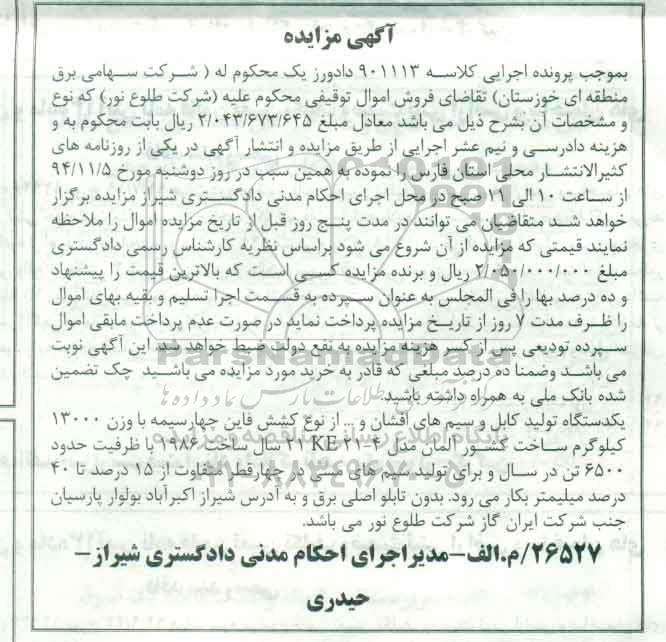 آگهی مزایده
بموجب پرونده اجرایی کلاسه ۹۰۱۱۱۳ دادورز یک محکوم له ( شرکت سهامی برق
منطقه ای خوزستان) تقاضای فروش اموال توقیفی محکوم علیه (شرکت طلوع نور) که نوع
و مشخصات آن بشرح ذیل می باشد معادل مبلغ ۲/۰۴۳/۶۷۳/۶۴۵ ریال بابت محکوم به و
هزینه دادرسی و نیم عشر اجرایی از طریق مزایده و انتشار آگهی در یکی از روزنامه های
کثیرالانتشار محلی استان فارس را نموده به همین سبب در روز دوشنبه مورخ ۹۴/۱۱/۵
از ساعت ۱۰ الی ۱۱ صبح در محل اجرای احکام مدنی دادگستری شیراز مزایده برگزار
خواهد شد متقاضیان می توانند در مدت پنج روز قبل از تاریخ مزایده اموال را ملاحظه
نمایند قیمتی که مزایده از آن شروع می شود براساس نظریه کارشناس رسمی دادگستری
مبلغ ۲/۰۵۰/۰۰۰/۰۰۰ ریال و برنده مزایده کسی است که بالاترین قیمت را پیشنهاد
و ده درصد بها را فی المجلس به عنوان سپرده به قسمت اجرا تسلیم و بقیه بهای اموال
را ظرف مدت ۷ روز از تاریخ مزایده پرداخت نماید در صورت عدم پرداخت مابقی اموال
سپرده تودیعی پس از کسر هزینه مزایده به نفع دولت ضبط خواهد شد این آگهی نوبت
می باشد وضمنا ده درصد مبلغی که قادر به خرید مورد مزایده می باشید چک تضمین
شده بانک ملی به همراه داشته باشید.
یکدستگاه تولید کابل و سیم های افشان و ... از نوع کشش فاین چهارسیمه با وزن ۱۳۰۰۰
کیلوگرم ساخت کشور آلمان مدل ۴-۲۱ KE ۲۱ سال ساخت ۱۹۸۶ با ظرفیت حدود
۶۵۰۰ تن در سال و برای تولید سیم های مسی در چهارقطر متفاوت از ۱۵ درصد تا ۴۰
درصد میلیمتر بکار می رود. بدون تابلو اصلی برق و به آدرس شیراز اکبرآباد بولوار پارسیان
جنب شرکت ایران گاز شرکت طلوع نور می باشد.
۲۶۵۲۷/م.الف-مدیراجرای احکام مدنی دادگستری شیراز-
حیدری
ParsNamadData
۰۲۱-۸۸۳۴۹۶۷۰-۵